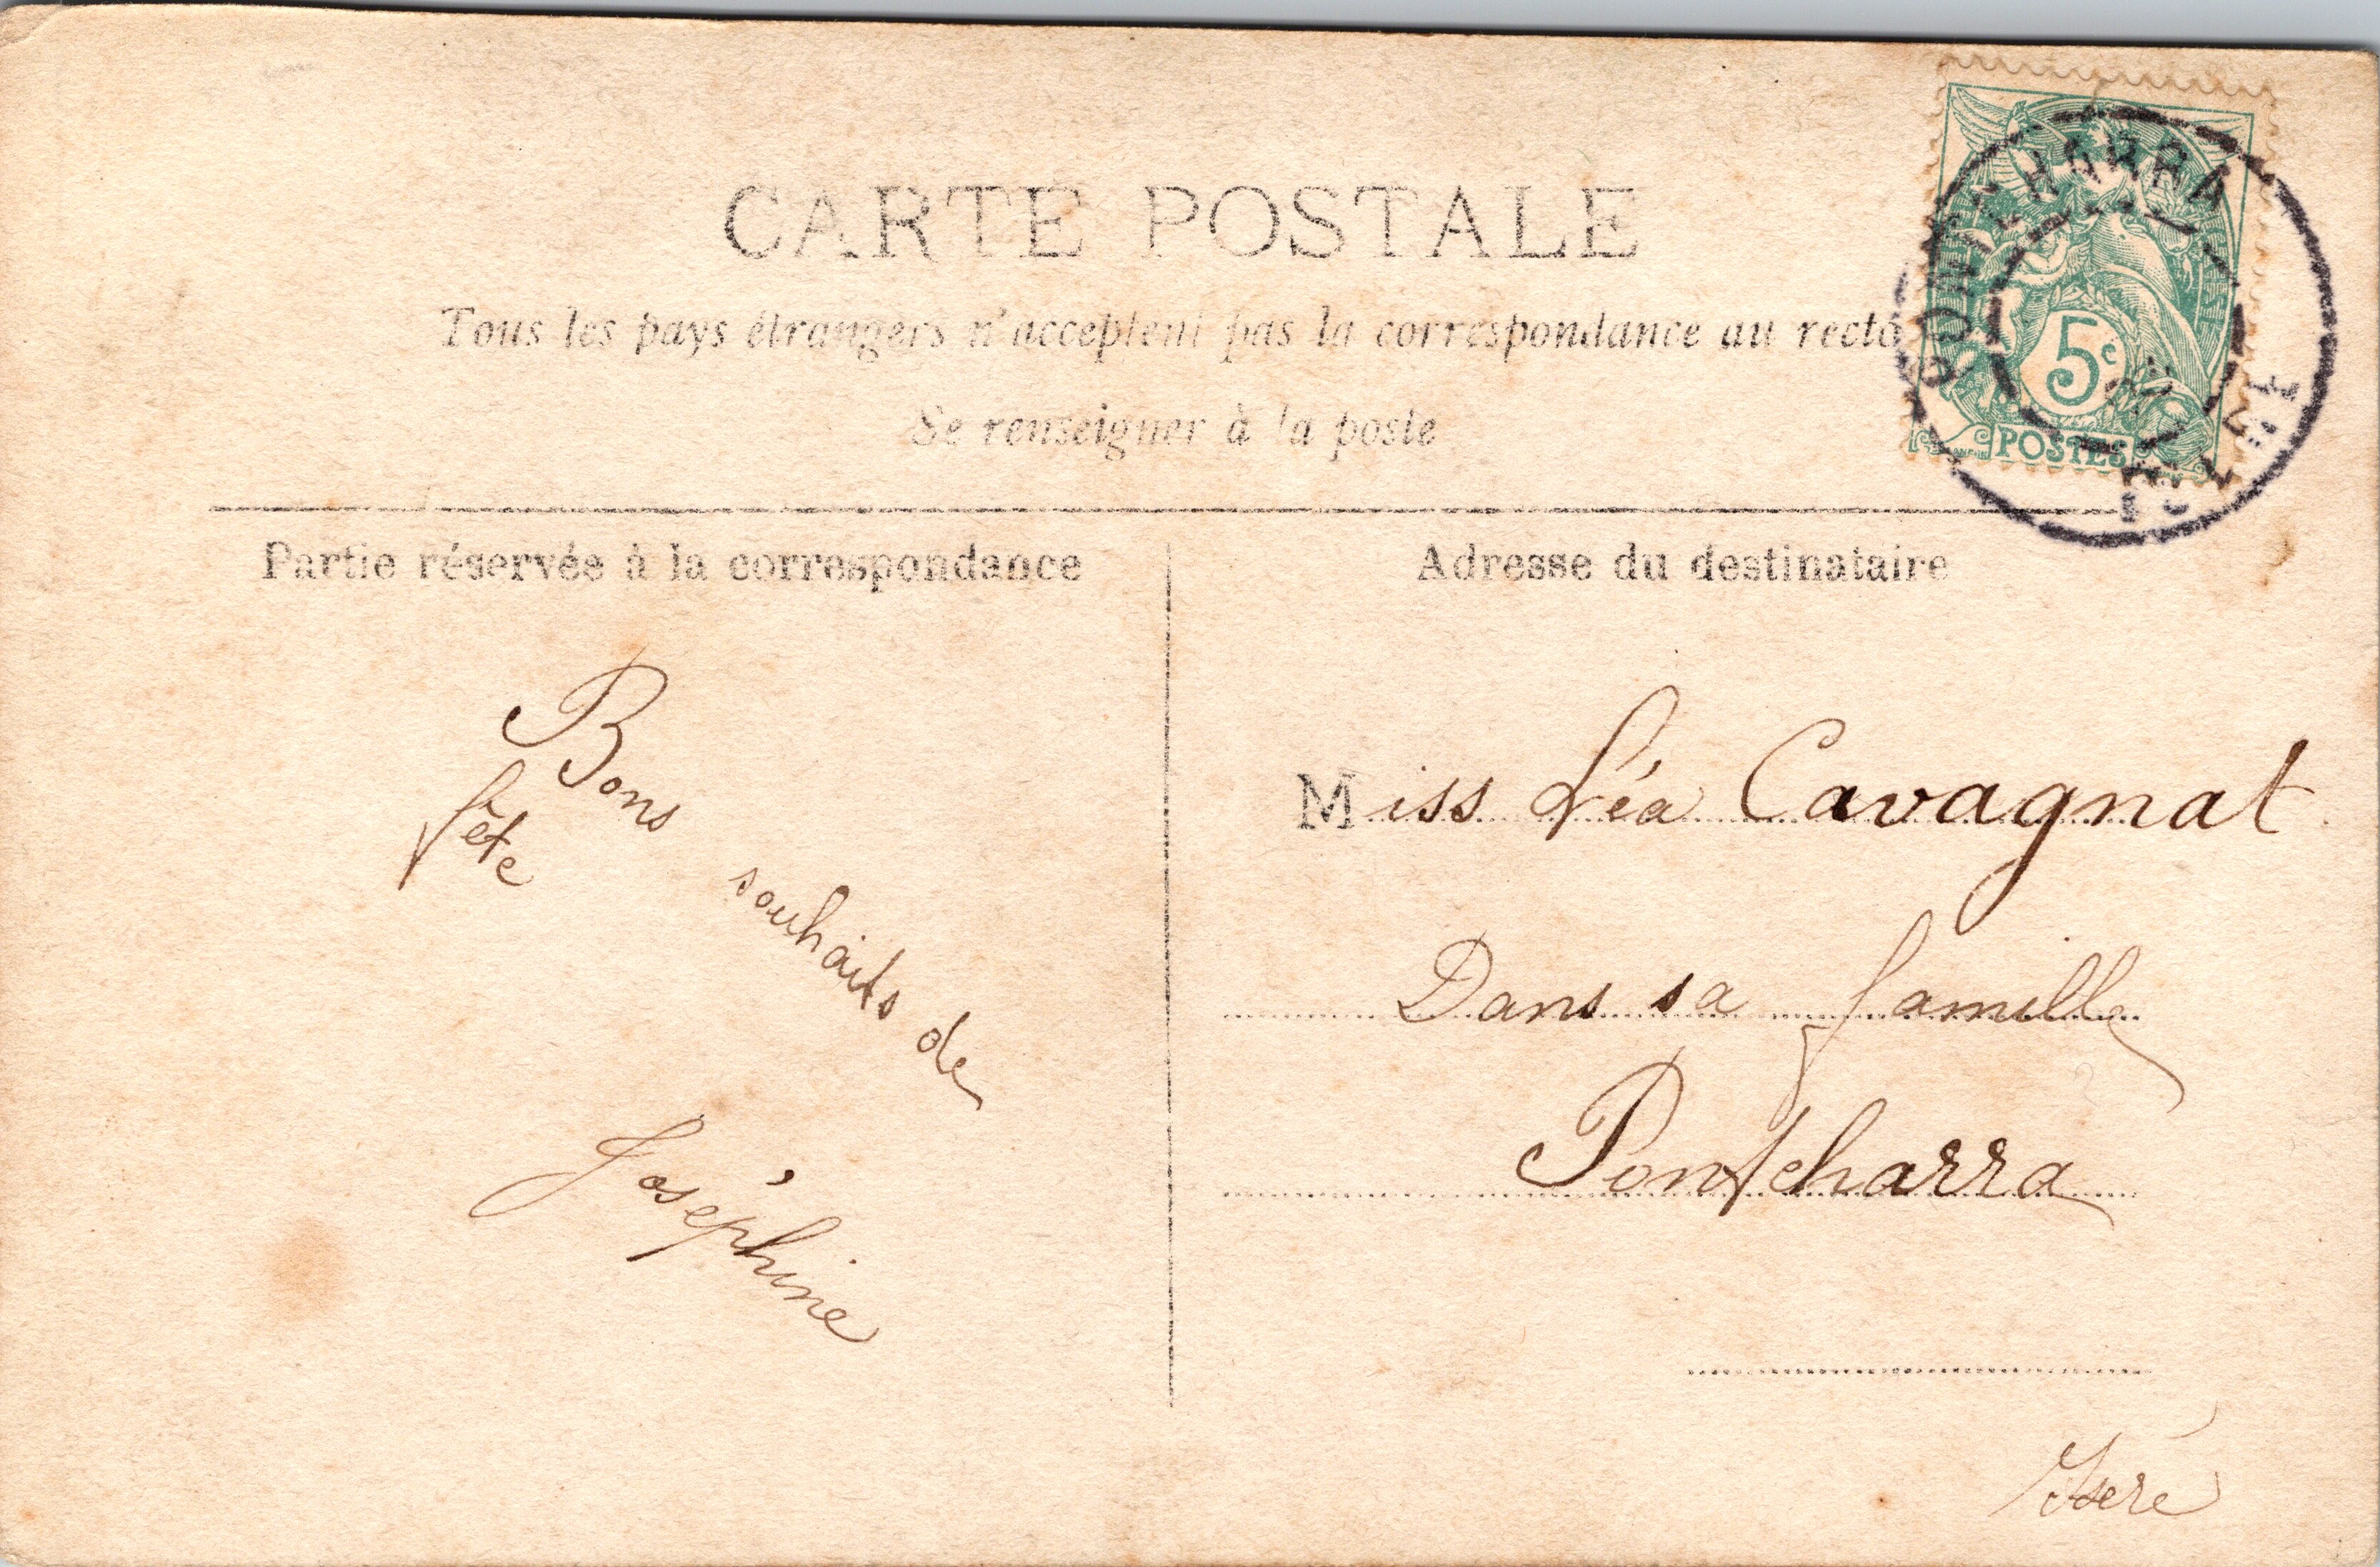 CARTE POSTALE
Tous les pays étrangers n'acceptent pas la correspondance au recto
Se renseigner à la poste
PONTCHARRA
5c
POSTES
Partie réservée à la correspondance
Bons souhaits de
fête
Joséphine
Adresse du destinataire
Miss Léa Cavagnat
Dans sa famille
Pontcharra
Iseré